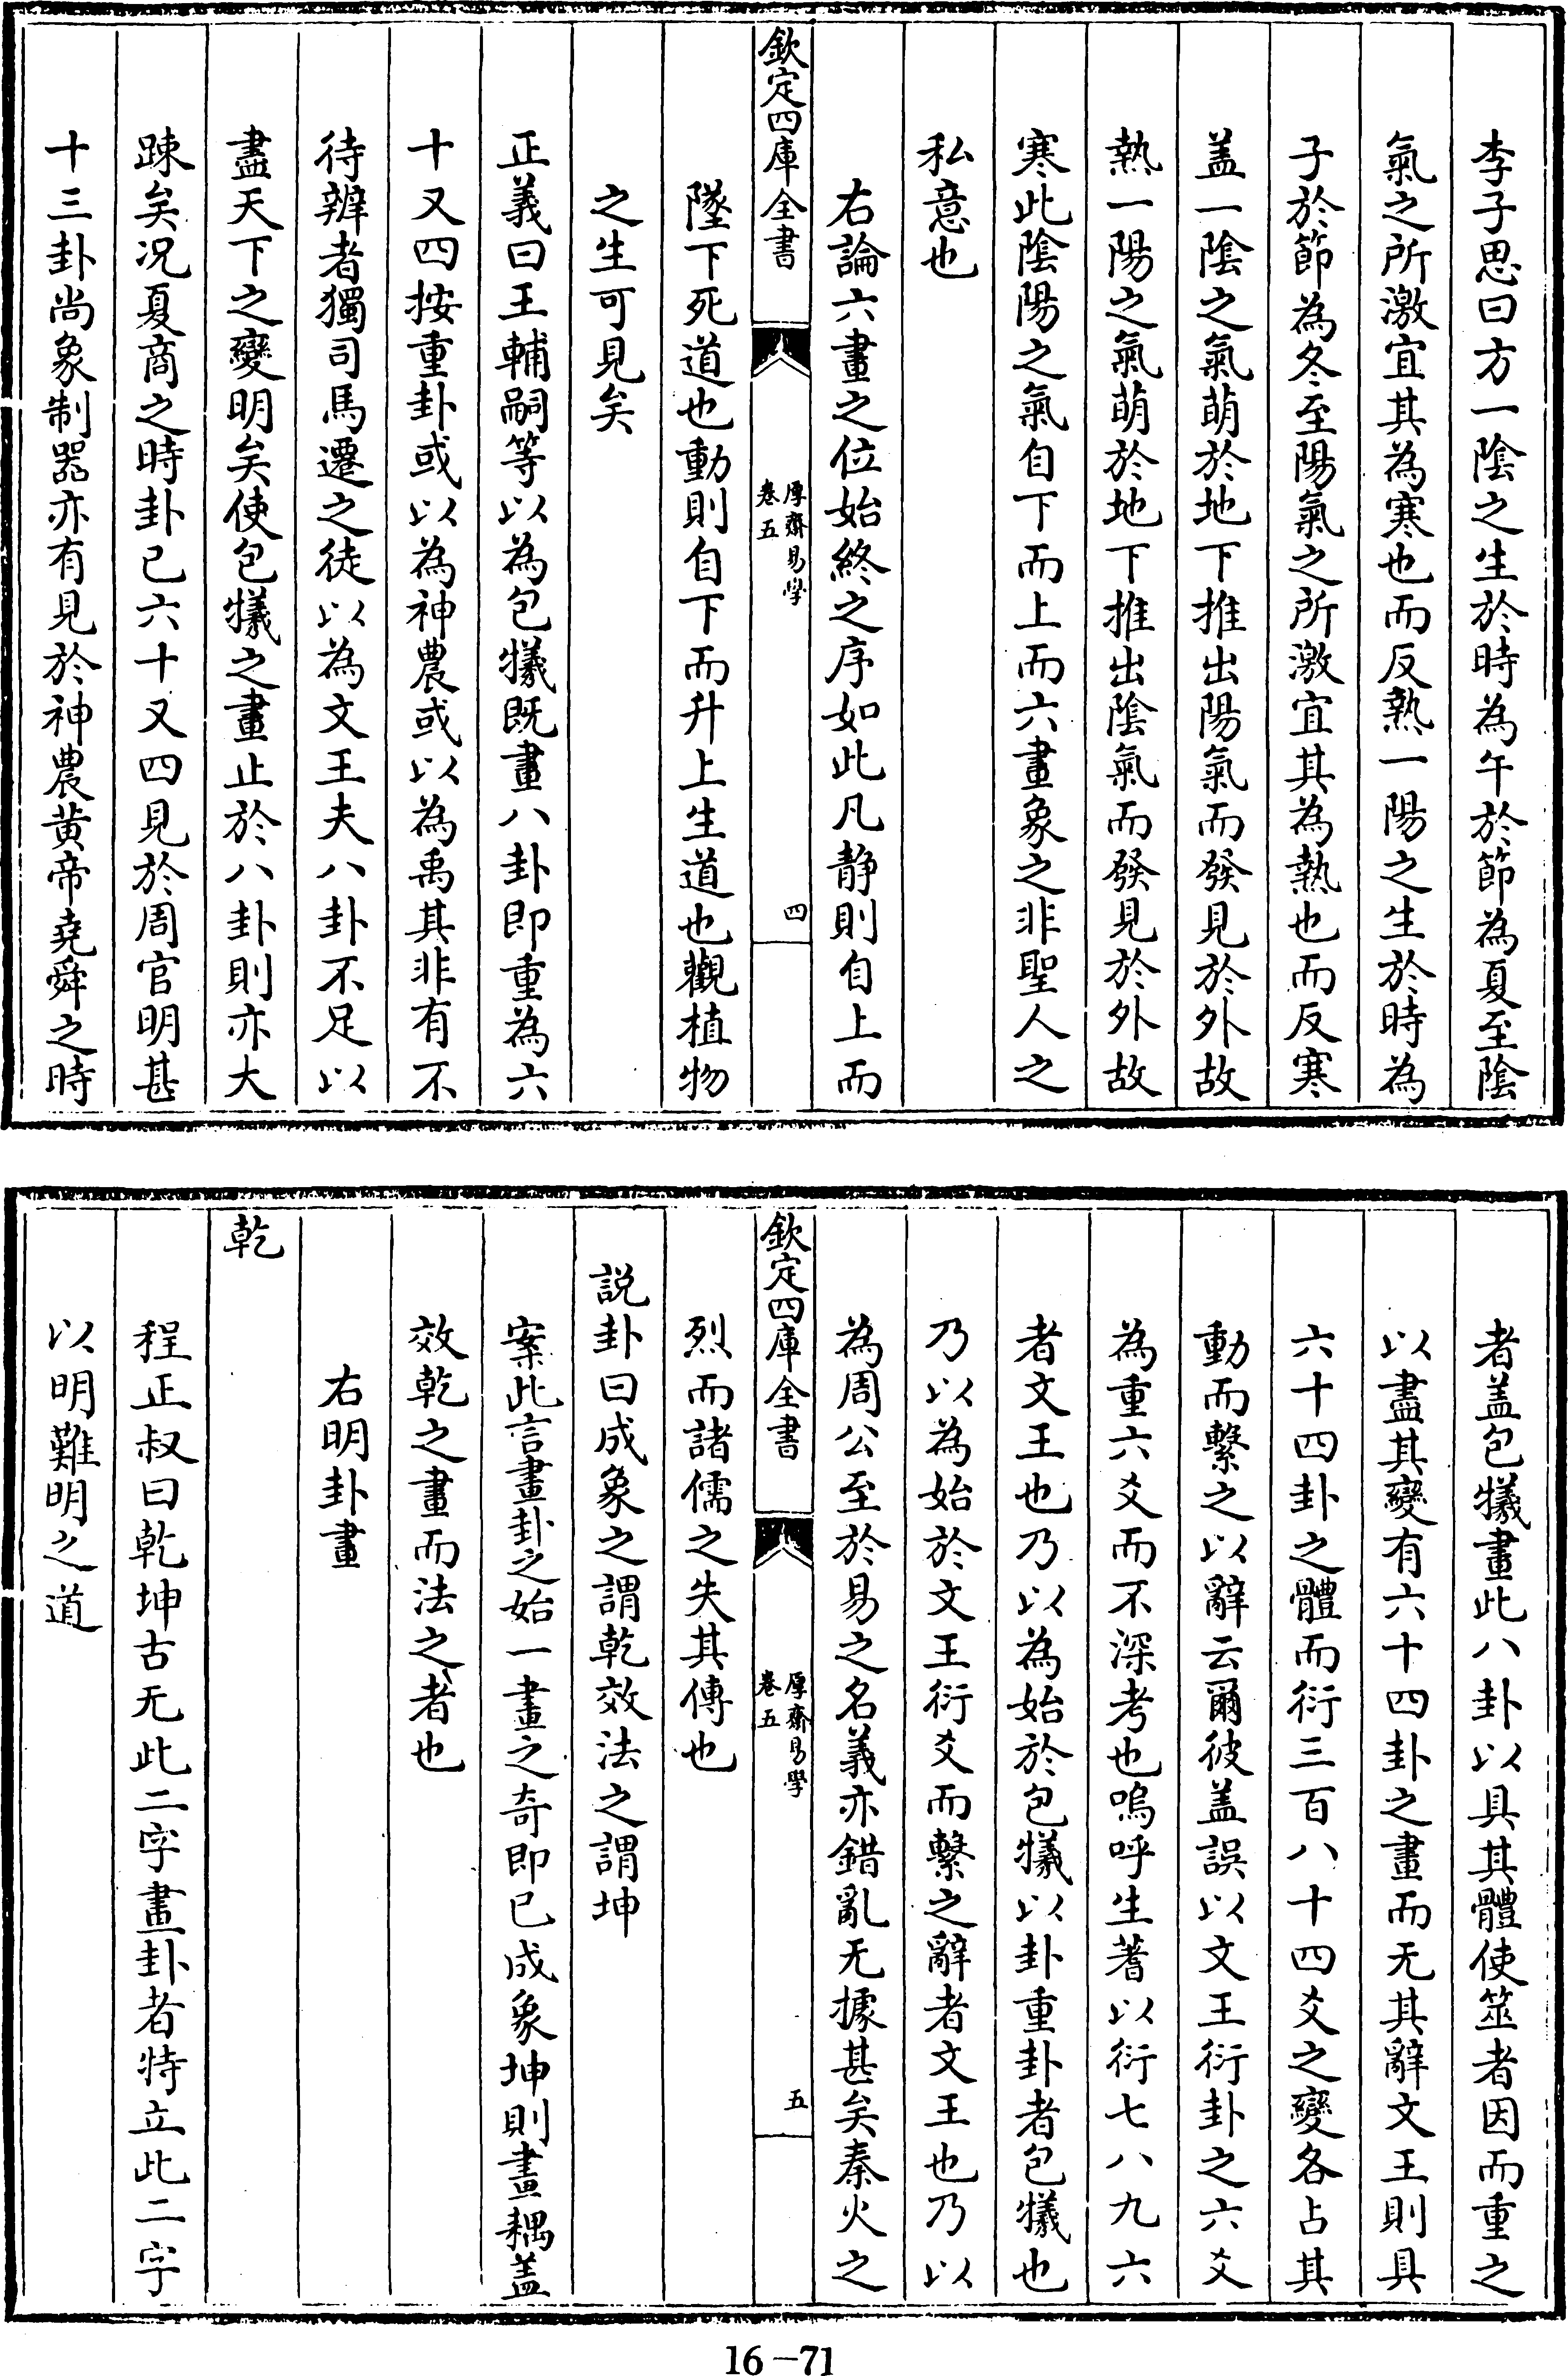 李子思曰方一陰之生於時為午於節為夏至陰
氣之所激宜其為寒也而反熱一陽之生於時為
子於節為冬至陽氣之所激宜其為熱也而反寒
盖一陰之氣萌於地下推出陽氣而發見於外故
熱一陽之氣萌於地下推出陰氣而發見於外故
寒此陰陽之氣自下而上而六畫象之非聖人之
私意也
右論六畫之位始終之序如此凡静則自上而
欽定四庫全書
厚齋易學
卷五
四
墜下死道也動則自下而升上生道也觀植物
之生可見矣
正義曰王輔嗣等以為包犧既畫八卦即重為六
十又四按重卦或以為神農或以為禹其非有不
待辨者獨司馬遷之徒以為文王夫八卦不足以
盡天下之變明矣使包犧之畫止於八卦則亦大
踈矣况夏商之時卦已六十又四見於周官明甚
十三卦尚象制器亦有見於神農黄帝堯舜之時
者盖包犧畫此八卦以具其體使筮者因而重之
以盡其變有六十四卦之畫而无其辭文王則具
六十四卦之體而衍三百八十四爻之變各占其
動而繫之以辭云爾彼盖誤以文王衍卦之六爻
為重六爻而不深考也嗚呼生蓍以衍七八九六
者文王也乃以為始於包犧以卦重卦者包犧也
乃以為始於文王衍爻而繫之辭者文王也乃以
為周公至於易之名義亦錯亂无據甚矣秦火之
欽定四庫全書
厚齋易學
卷五
五
烈而諸儒之失其傳也
説卦曰成象之謂乾效法之謂坤
案此言畫卦之始一畫之奇即已成象坤則畫耦盖
效乾之畫而法之者也
右明卦畫
乾
程正叔曰乾坤古无此二字畫卦者特立此二字
以明難明之道
16-71